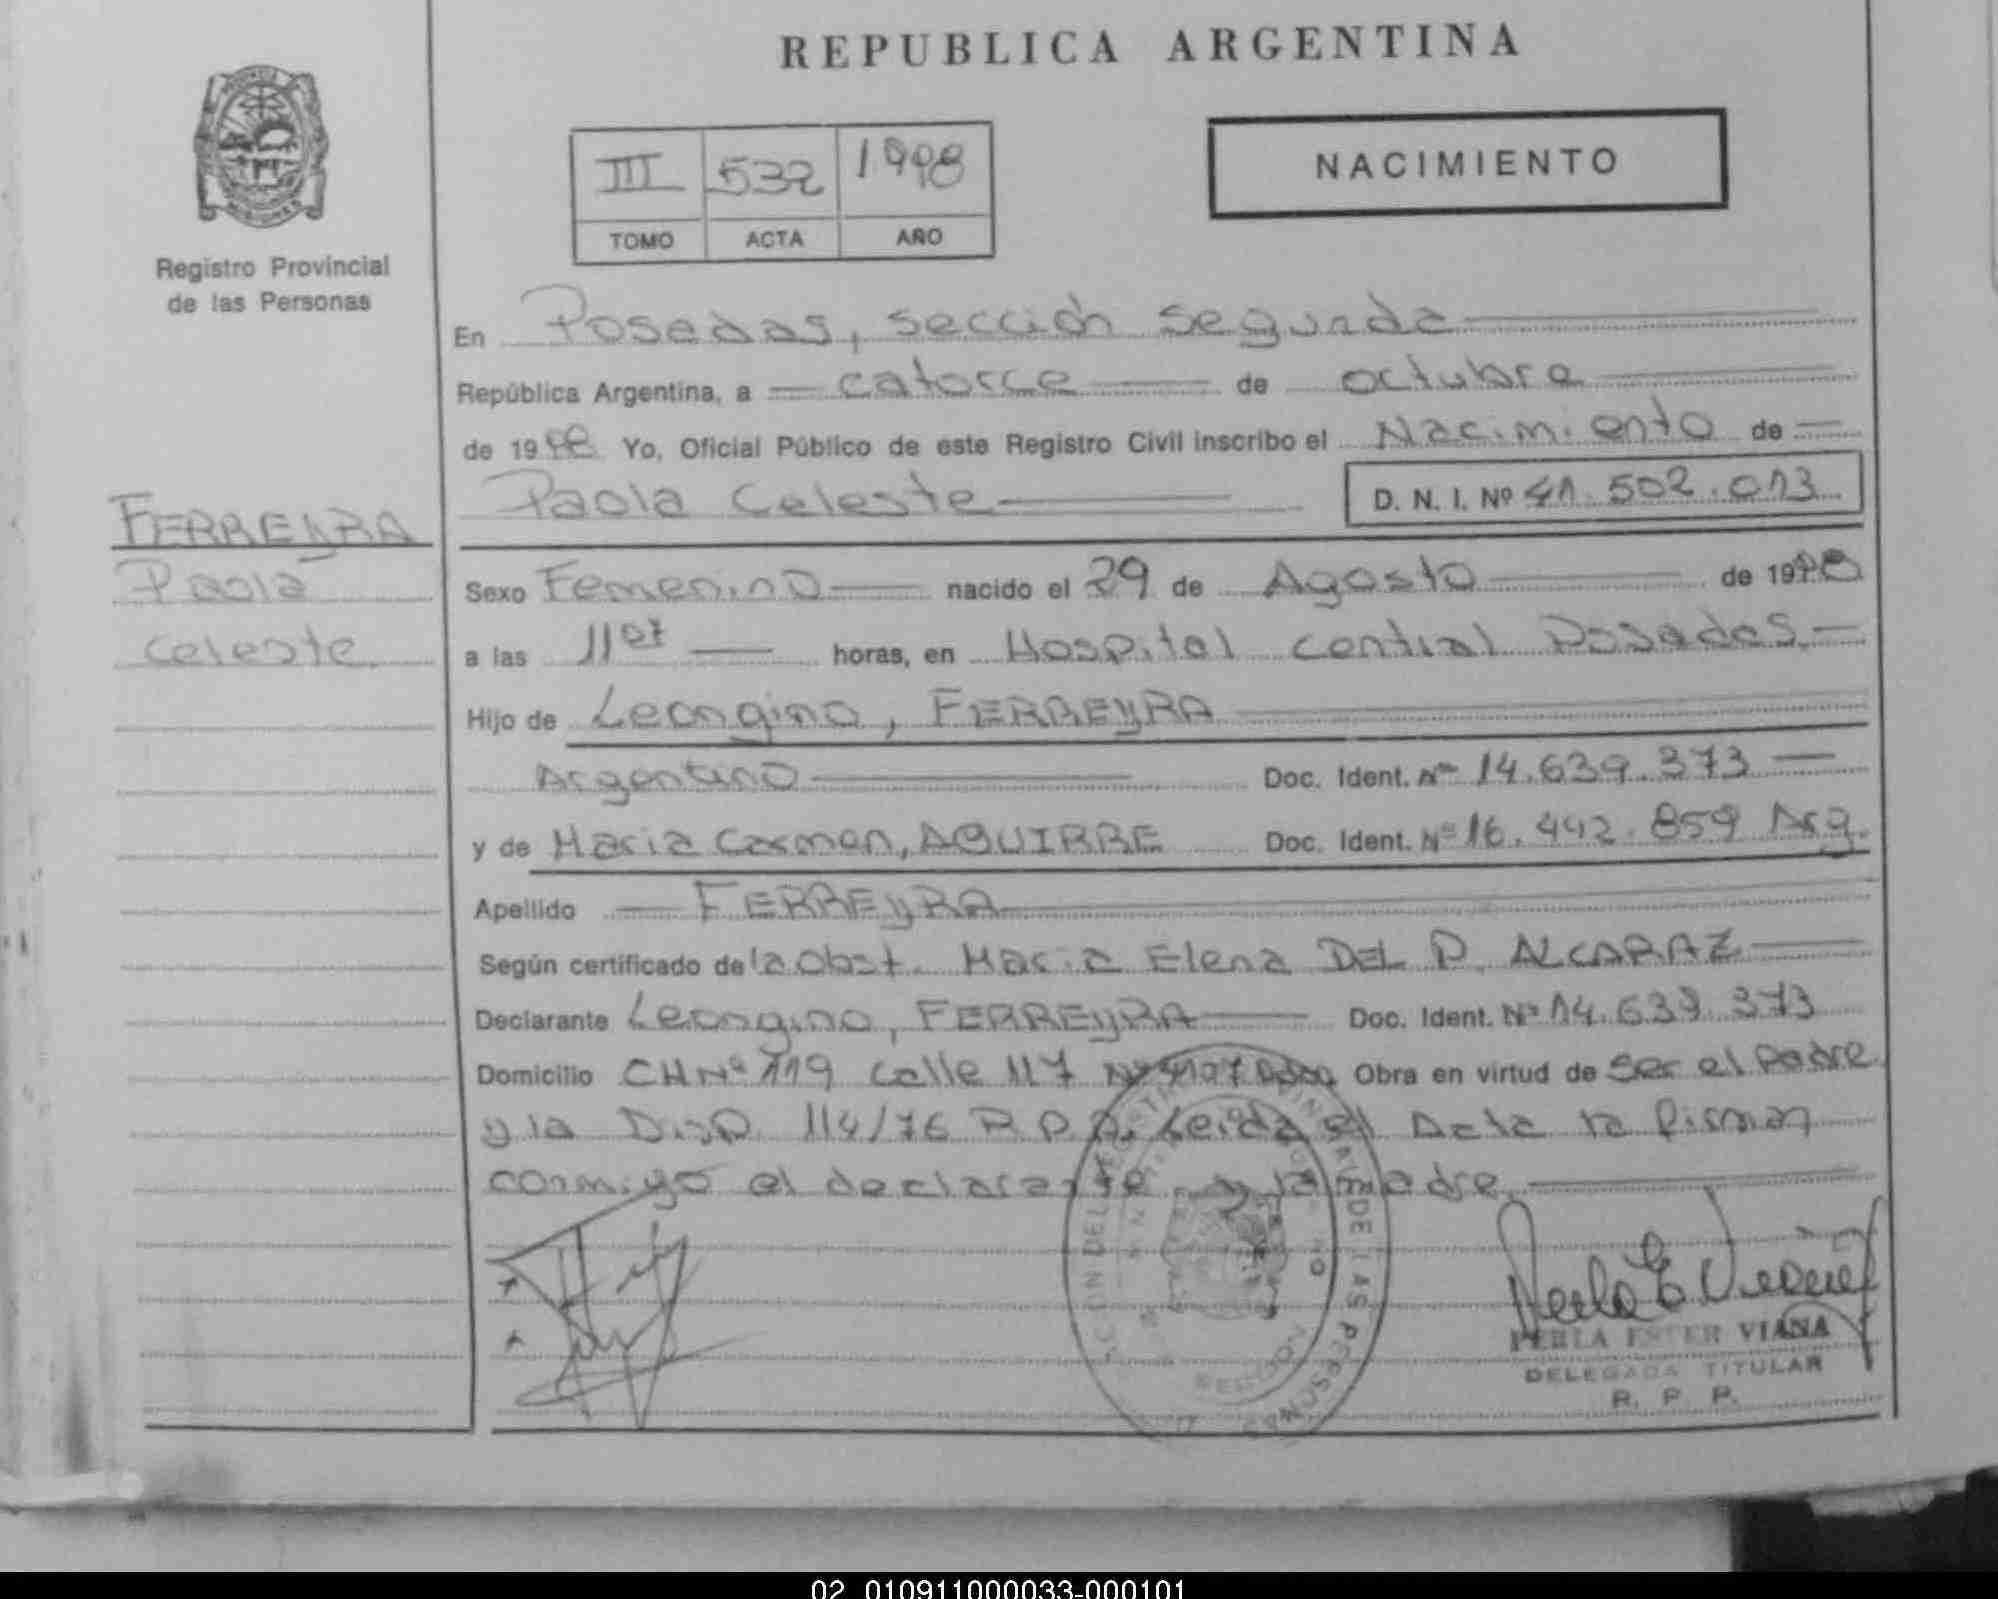 REPUBLICA ARGENTINA
NACIMIENTO
III 532 1998
TOMO ACTA AÑO
Registro Provincial
de las Personas
En Posadas, sección segunda
República Argentina, a catorce de octubre
de 1998 Yo, Oficial Público de este Registro Civil inscribo el Nacimiento de
Paola Celeste D. N. I. Nº 41.502.013
FERREYRA
Paola
Celeste
Sexo Femenino nacido el 29 de Agosto de 1998
a las 11 07 horas, en Hospital central Posadas.
Hijo de Leongino, FERREYRA
Argentino Doc. Ident. Nº 14.639.373
y de Maria Carmen, AGUIRRE Doc. Ident. Nº 16.442.859 Arg.
Apellido FERREYRA
Según certificado de la Obst. Maria Elena DEL P. ALCARAZ
Declarante Leongino, FERREYRA Doc. Ident. Nº 14.639.373
Domicilio CH Nº 119 calle 117 Nº 4107 Obra en virtud de ser el Padre
y la Disp. 114/76 R.P.P. Leida el Acta la firman
conmigo el declarante y la madre.
PERLA ESTER VIANA
DELEGADA TITULAR
R. P. P.
02 010911000033-000101